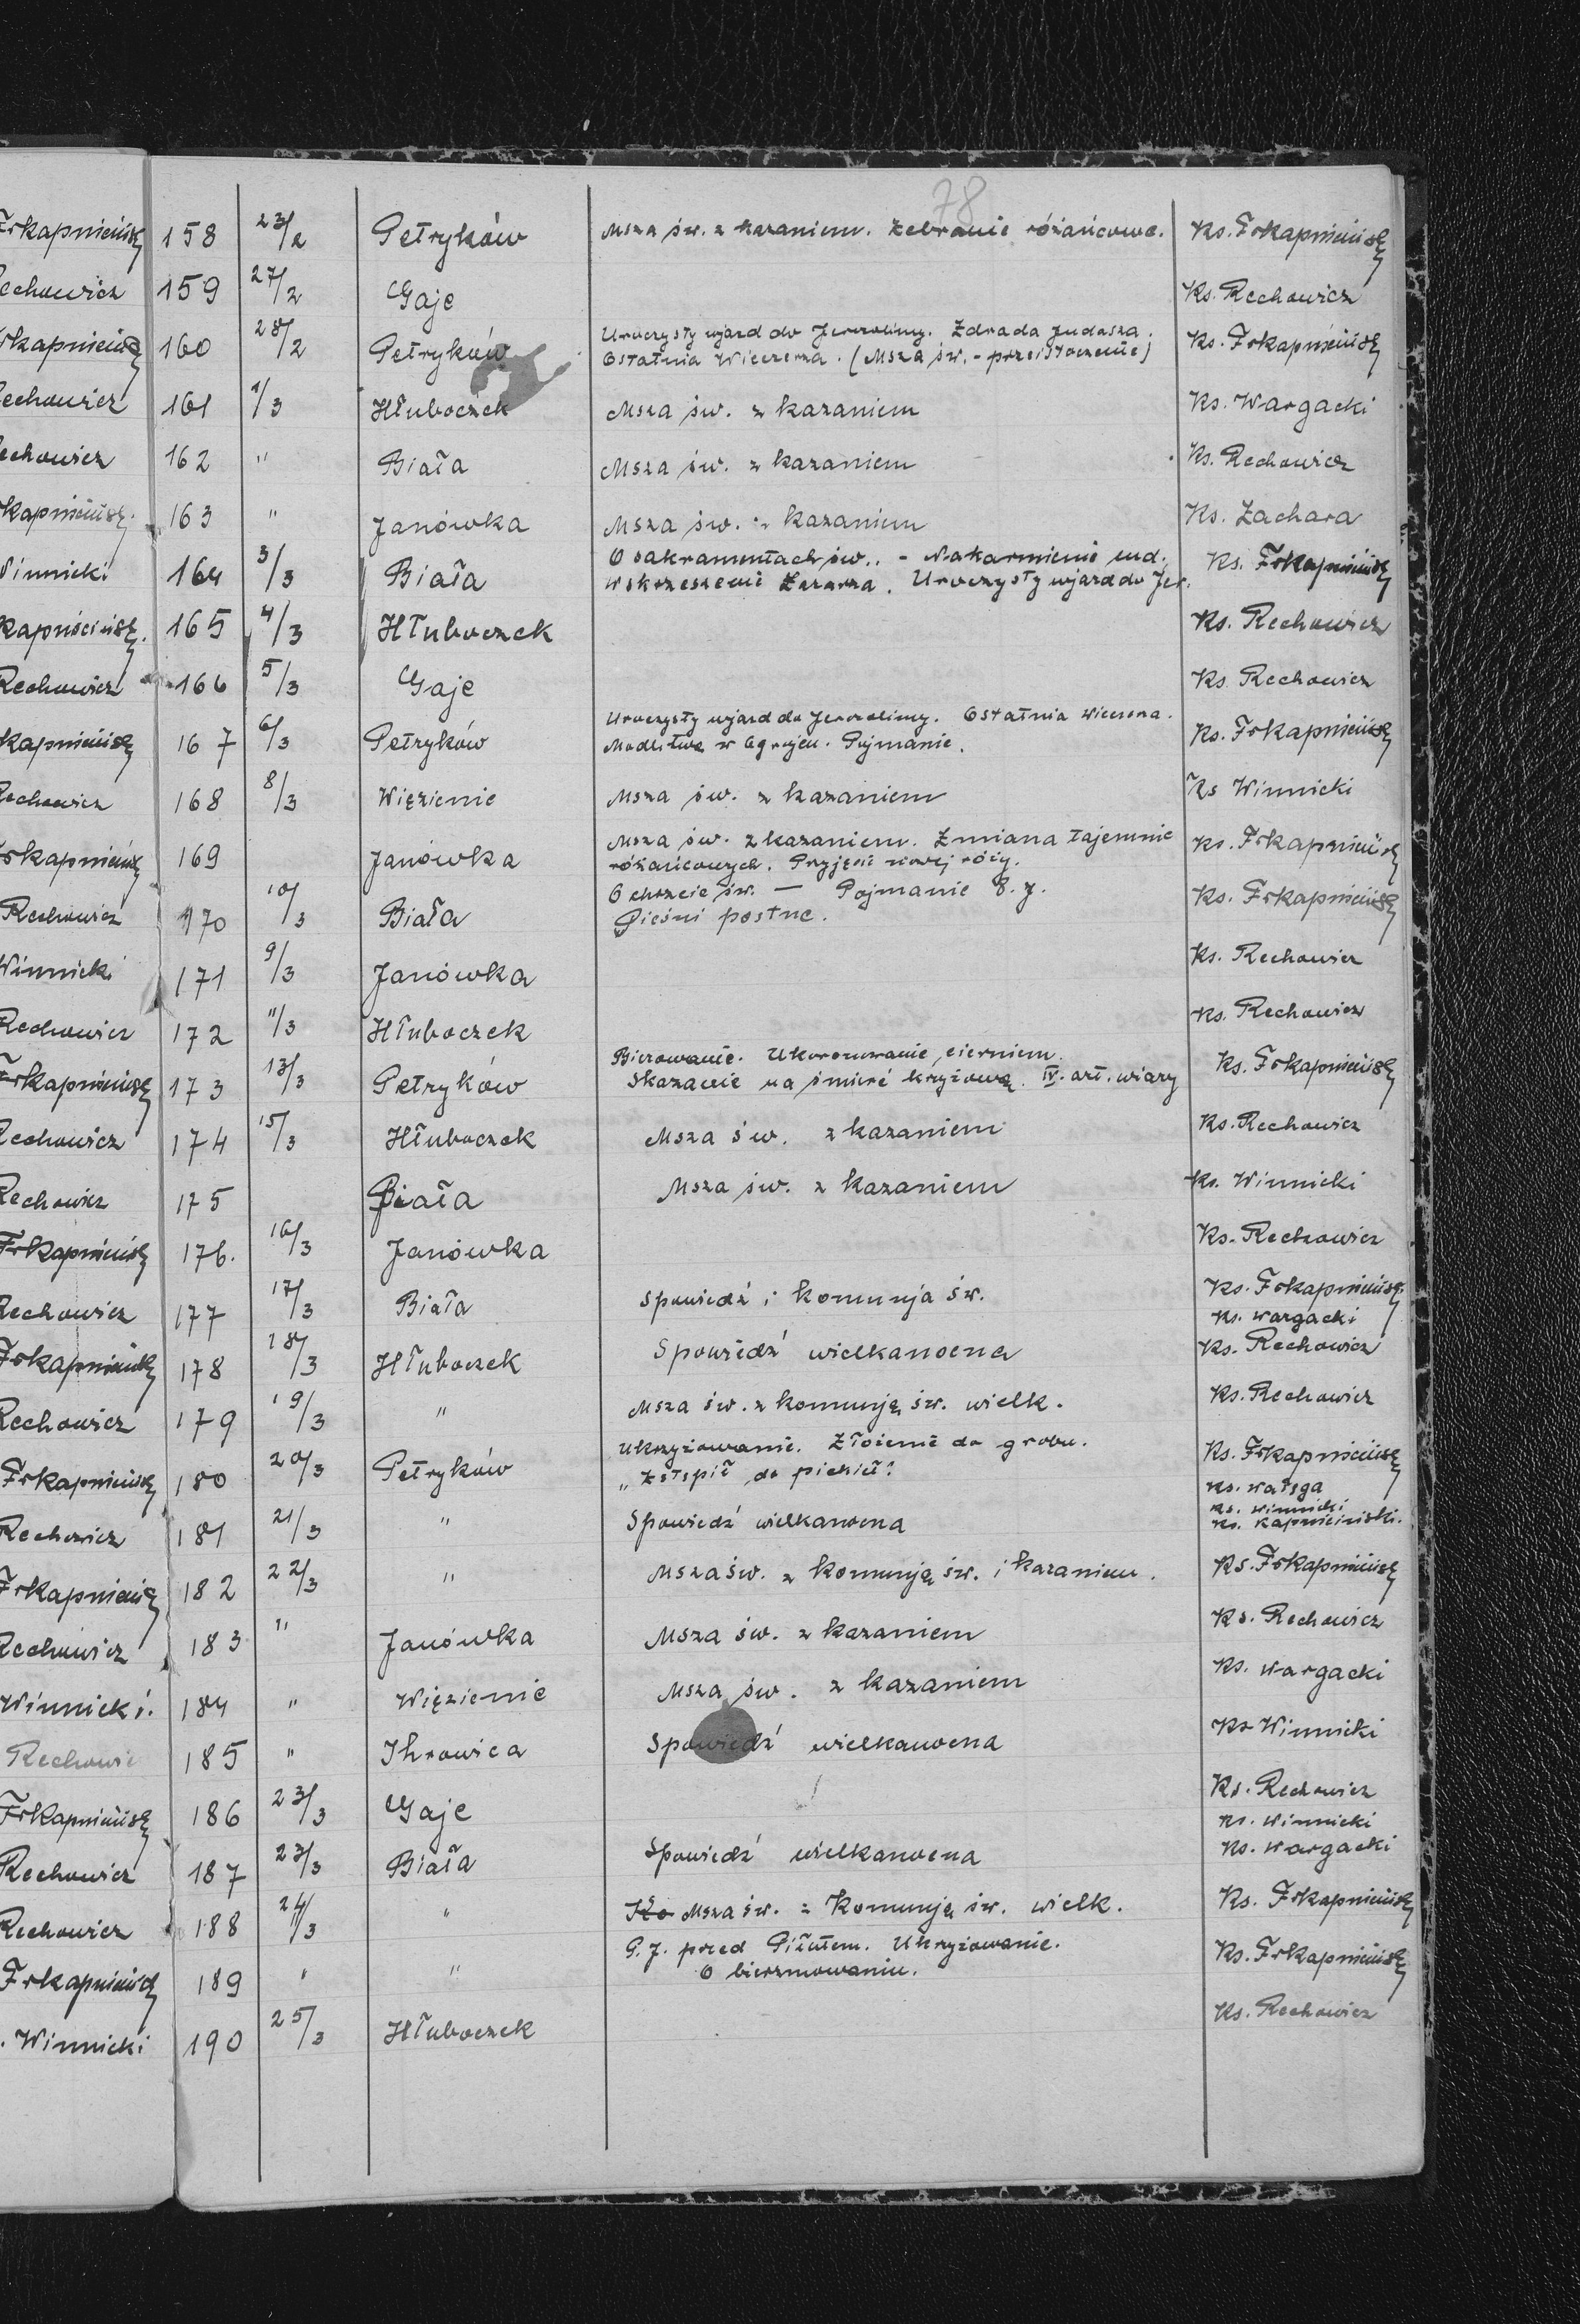 78
Frkapnicińsk 158 23/2 Petryków Msza św. z kazaniem. Zebranie różańcowe. Ks. Frkapnicińsk
echowicz 159 27/2 Gaje Ks. Rechowicz
rkapnicińsk 160 28/2 Petryków Uroczysty wjazd do Jerozolimy. Zdrada Judasza. Ks. Frkapnicińsk
Ostatnia Wieczerza. (Msza św. - przeistoczenie)
echowicz 161 1/3 Hłuboczek Msza św. z kazaniem Ks. Wargacki
echowicz 162 " Biała Msza św. z kazaniem Ks. Rechowicz
kapnicińsk. 163 " Janówka Msza św. z kazaniem Ks. Zachara
Winnicki 164 3/3 Biała O sakramentach św.. - Nakarmienie cud. Ks. Frkapnicińsk
Wskrzeszenie Łazarza. Uroczysty wjazd do Jer.
kapnicińsk. 165 4/3 Hłuboczek Ks. Rechowicz
Rechowicz 166 5/3 Gaje Ks. Rechowicz
kapnicińsk 167 6/3 Petryków Uroczysty wjazd do Jerozolimy. Ostatnia Wieczerza. Ks. Frkapnicińsk
Modlitwa w Ogrojcu. Pojmanie.
Rechowicz 168 8/3 Więzienie Msza św. z kazaniem Ks Winnicki
rkapnicińsk 169 Janówka Msza św. z kazaniem. Zmiana tajemnic Ks. Frkapnicińsk
różańcowych. Przyjęcie nowej róży.
Rechowicz 170 10/3 Biała O chrzcie św. — Pojmanie P. J. Ks. Frkapnicińsk
Pieśni postne.
Winnicki 171 9/3 Janówka Ks. Rechowicz
Rechowicz 172 11/3 Hłuboczek Ks. Rechowicz
Frkapnicińsk 173 13/3 Petryków Biczowanie. Ukoronowanie cierniem. Ks. Frkapnicińsk
Skazanie na śmierć krzyżową. IV. art. wiary
Rechowicz 174 15/3 Hłuboczek Msza św. z kazaniem Ks. Rechowicz
Rechowicz 175 Biała Msza św. z kazaniem Ks. Winnicki
Frkapnicińsk 176. 16/3 Janówka Ks. Rechowicz
Rechowicz 177 17/3 Biała Spowiedź i komunja św. Ks. Frkapnicińsk.
Ks. Wargacki
Frkapnicińsk 178 18/3 Hłuboczek Spowiedź wielkanocna Ks. Rechowicz
Rechowicz 179 19/3 " Msza św. z komunją św. wielk. Ks. Rechowicz
Frkapnicińsk 180 20/3 Petryków Ukrzyżowanie. Złożenie do grobu. Ks. Frkapnicińsk
"Zstąpił do piekieł"
Ks. Wałęga
Rechowicz 181 21/3 " Spowiedź wielkanocna Ks. Winnicki
Ks. Kapniciński.
Frkapnicińsk 182 22/3 " Msza św. z komunją św. i kazaniem. Ks. Frkapnicińsk
Rechowicz 183 " Janówka Msza św. z kazaniem Ks. Rechowicz
Winnicki. 184 " Więzienie Msza św. z kazaniem Ks. Wargacki
Rechowic 185 " Ihrowica Spowiedź wielkanocna Ks Winnicki
Frkapnicińsk 186 23/3 Gaje Ks. Rechowicz
Ks. Winnicki
Rechowicz 187 23/3 Biała Spowiedź wielkanocna Ks. Wargacki
Rechowicz 188 24/3 " Ko Msza św. z Komunją św. wielk. Ks. Frkapnicińsk
Frkapnicińsk 189 " " P. J. przed Piłatem. Ukrzyżowanie. Ks. Frkapnicińsk
O bierzmowaniu.
. Winnicki 190 25/3 Hłuboczek Ks. Rechowicz